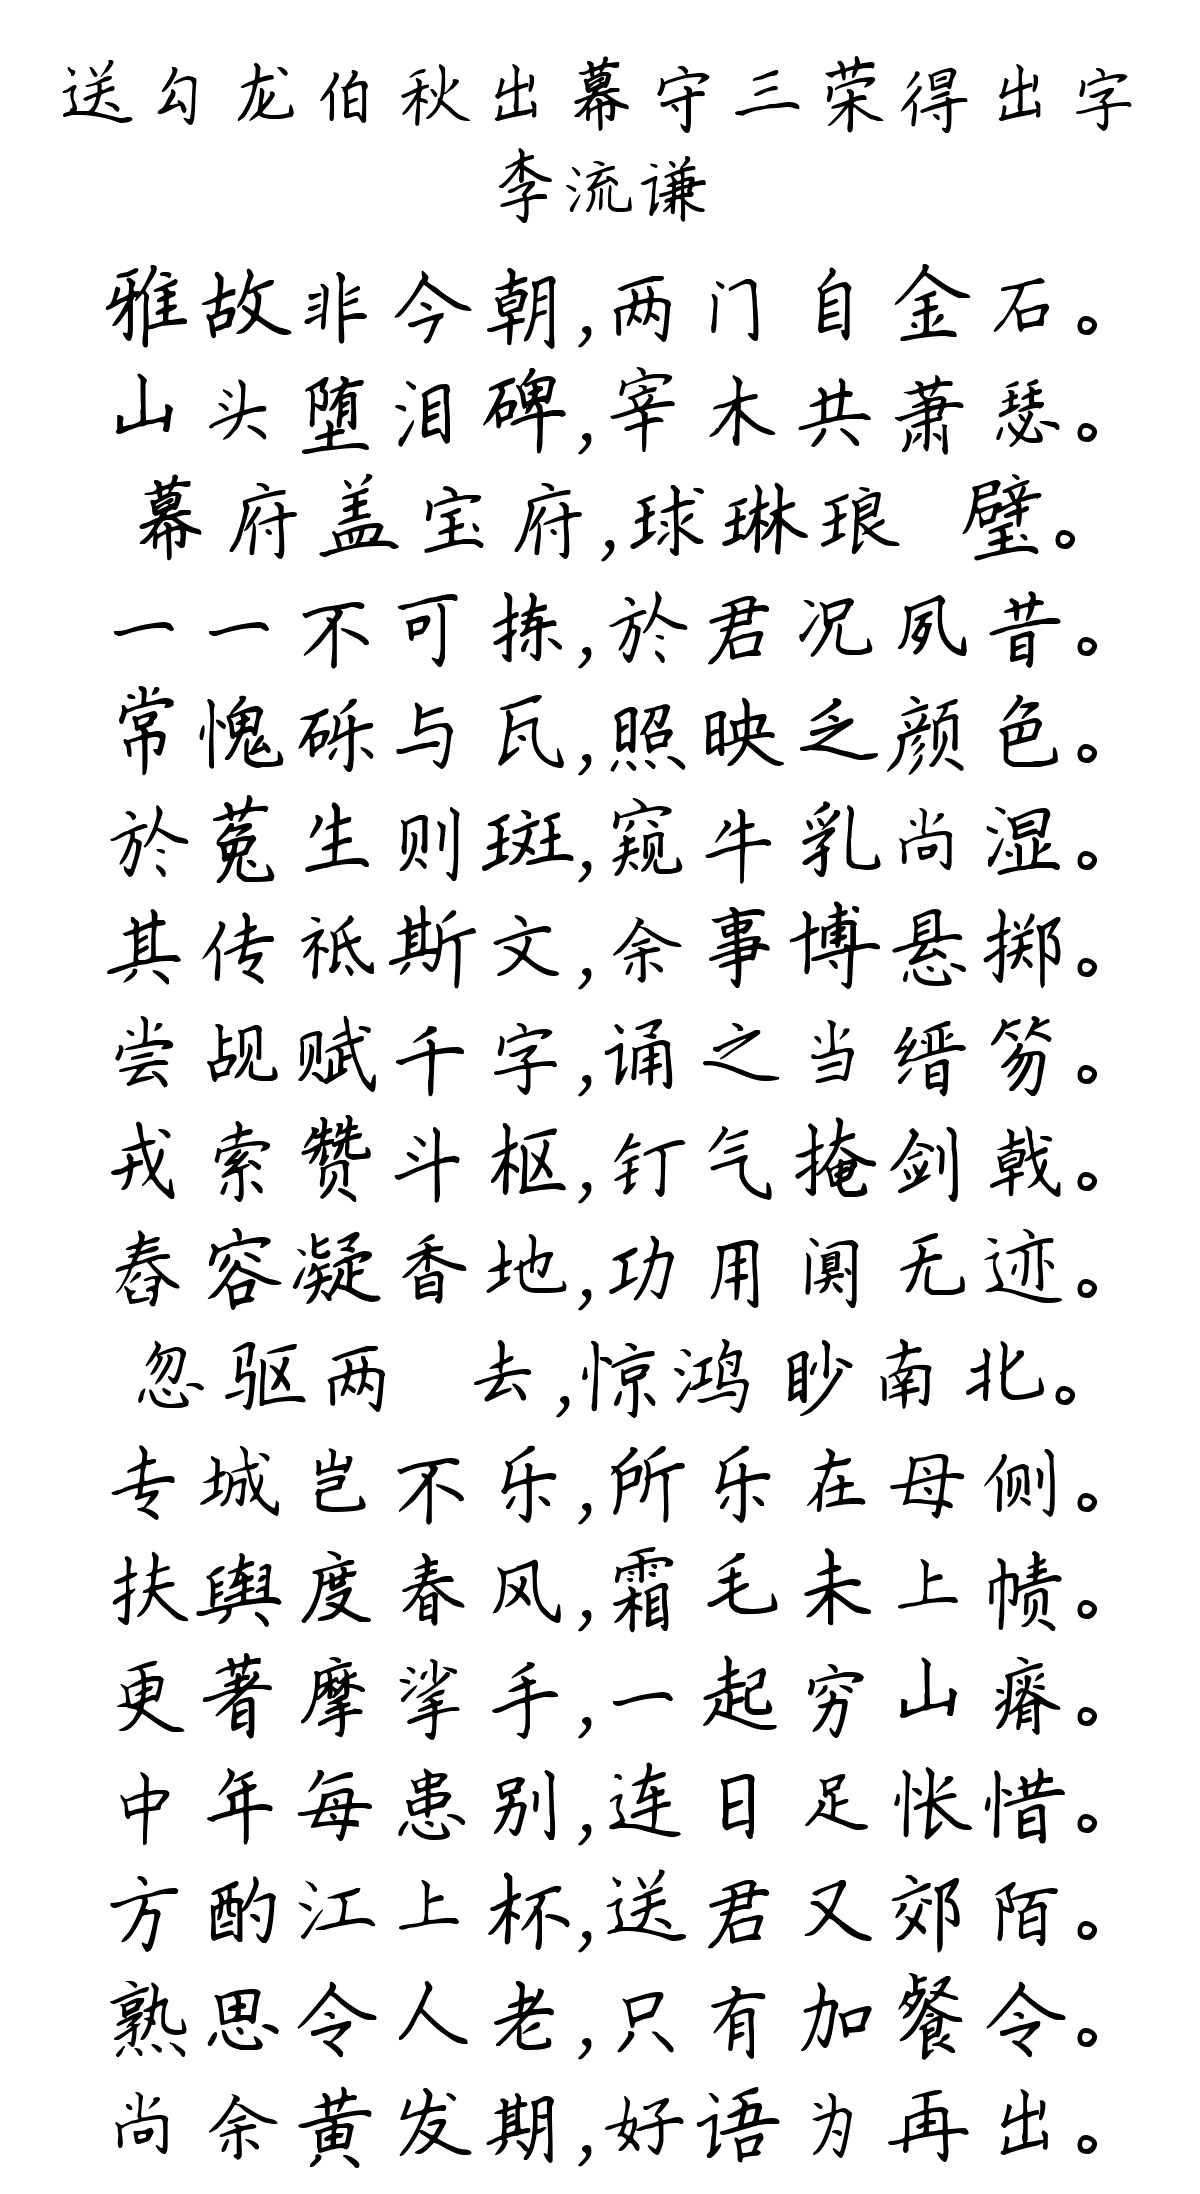 送勾龙伯秋出幕守三荣得出字
李流谦
雅故非今朝,两门自金石。
山头堕泪碑,宰木共萧瑟。
幕府盖宝府,球琳琅 璧。
一一不可拣,於君况夙昔。
常愧砾与瓦,照映乏颜色。
於菟生则斑,窥牛乳尚湿。
其传祗斯文,余事博悬掷。
尝觇赋千字,诵之当缙笏。
戎索赞斗枢,钉气掩剑戟。
舂容凝香地,功用阒无迹。
忽驱两 去,惊鸿眇南北。
专城岂不乐,所乐在母侧。
扶舆度春风,霜毛未上帻。
更著摩挲手,一起穷山瘠。
中年每患别,连日足怅惜。
方酌江上杯,送君又郊陌。
熟思令人老,只有加餐令。
尚余黄发期,好语为再出。